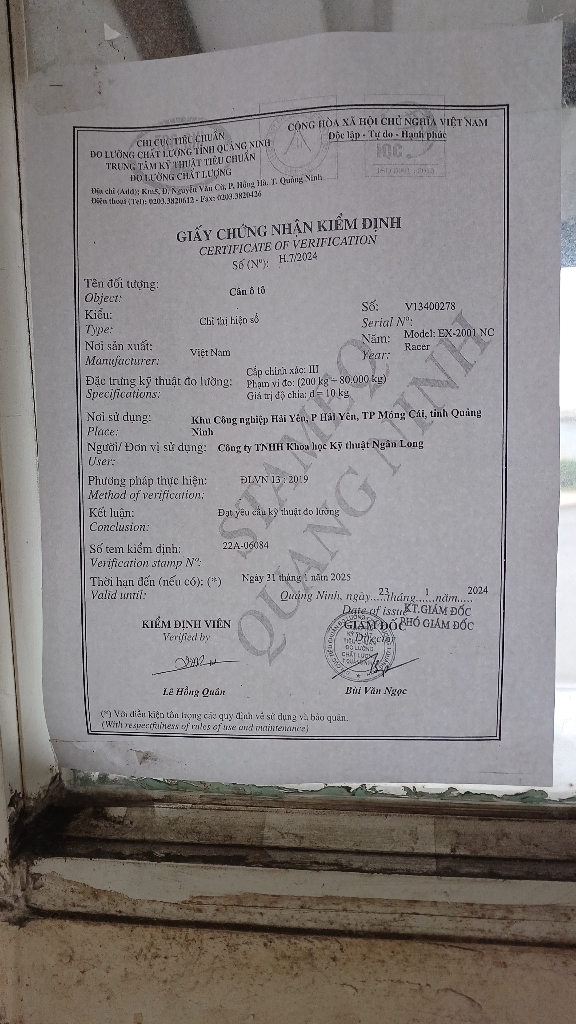 CHI CỤC TIÊU CHUẨN
ĐO LƯỜNG CHẤT LƯỢNG TỈNH QUẢNG NINH
TRUNG TÂM KỸ THUẬT TIÊU CHUẨN
ĐO LƯỜNG CHẤT LƯỢNG
Địa chỉ (Add): Km5, Đ. Nguyễn Văn Cừ, P. Hồng Hà, T. Quảng Ninh
Điện thoại (Tel): 0203.3820612 - Fax: 0203.3820426
CỘNG HÒA XÃ HỘI CHỦ NGHĨA VIỆT NAM
Độc lập - Tự do - Hạnh phúc
GIẤY CHỨNG NHẬN KIỂM ĐỊNH
CERTIFICATE OF VERIFICATION
Số (Nº): H.7/2024
Tên đối tượng: Cân ô tô
Object:
Kiểu: Chỉ thị hiện số
Type:
Số: V13400278
Serial Nº:
Nơi sản xuất: Việt Nam
Manufacturer:
Năm: Model: EX-2001 NC
Year: Racer
Đặc trưng kỹ thuật đo lường:
Specifications:
Cấp chính xác: III
Phạm vi đo: (200 kg ÷ 80.000 kg)
Giá trị độ chia: d = 10 kg
Nơi sử dụng: Khu Công nghiệp Hải Yên, P Hải Yên, TP Móng Cái, tỉnh Quảng
Place: Ninh
Người/ Đơn vị sử dụng: Công ty TNHH Khoa học Kỹ thuật Ngân Long
User:
Phương pháp thực hiện: ĐLVN 13 : 2019
Method of verification:
Kết luận: Đạt yêu cầu kỹ thuật đo lường
Conclusion:
Số tem kiểm định: 22A-06084
Verification stamp Nº:
Thời hạn đến (nếu có): (*) Ngày 31 tháng 1 năm 2025
Valid until:
Quảng Ninh, ngày....23tháng...1...năm.....2024
Date of issue
KT.GIÁM ĐỐC
PHÓ GIÁM ĐỐC
KIỂM ĐỊNH VIÊN
Verified by
GIÁM ĐỐC
Director
Lê Hồng Quân
Bùi Văn Ngọc
(*) Với điều kiện tôn trọng các quy định về sử dụng và bảo quản.
(With respectfulness of rules of use and maintenance)
STAMEQ
QUANG NINH